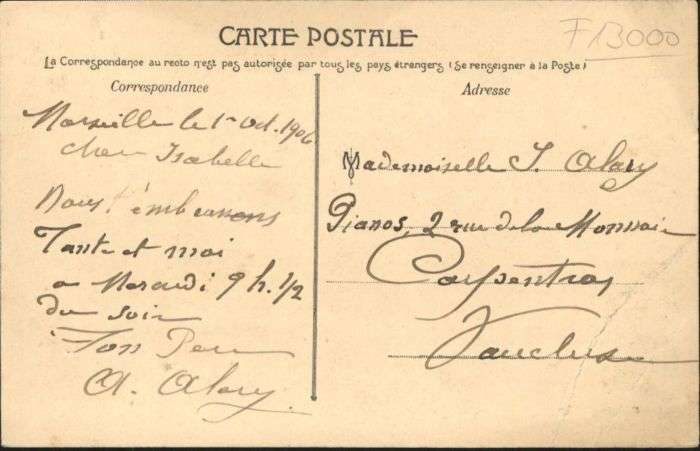 F13000
CARTE POSTALE
La Correspondance au recto n'est pas autorisée par tous les pays étrangers (Se renseigner à la Poste)
Correspondance
Marseille le 1er Oct. 1906
Chère Isabelle
Nous t'embrassons
Tante et moi
a Mercredi 9 h. 1/2
du soir
Ton Père
A. Alary.
Adresse
Mademoiselle I. Alary
Pianos, 2 rue de la Monnaie
Carpentras
Vaucluse